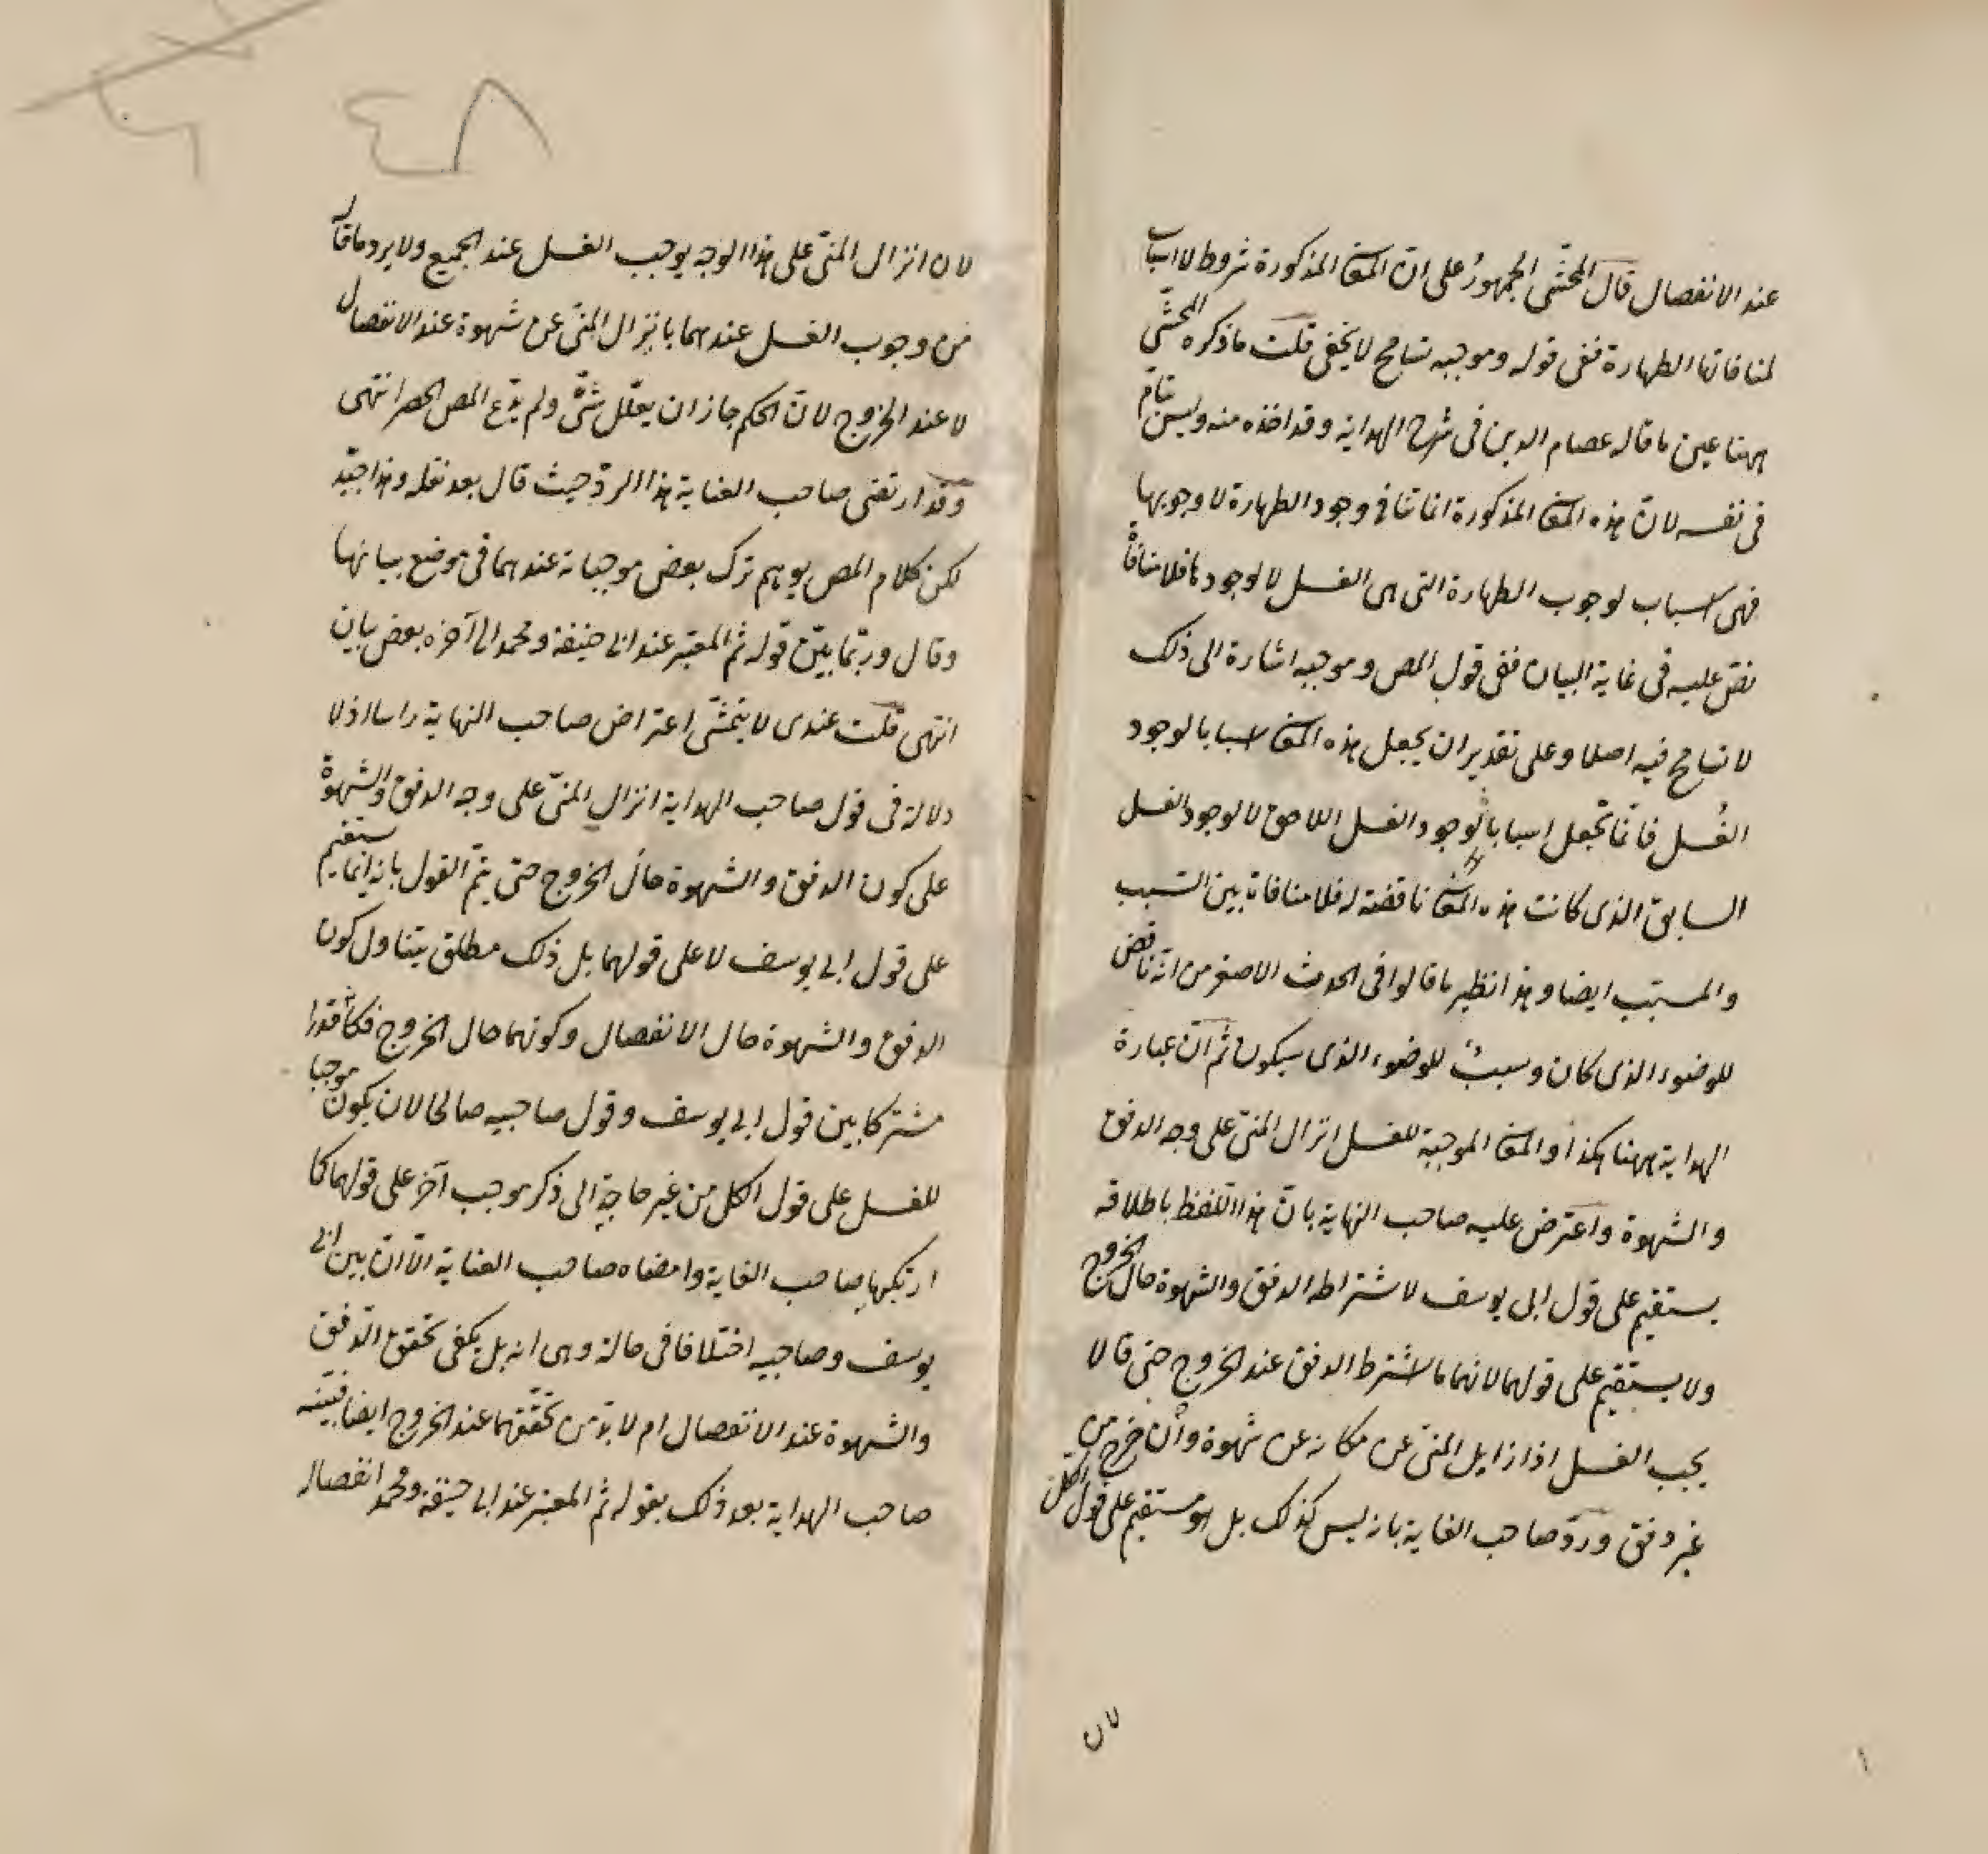 عند الانفصال قال المحشّى الجمهورُ على انّ المعا المذكورة شروط لا اسباب
لمنافاتها الطهارة ففى قوله وموجبه تسامح لا يخفى قلت ما ذكره المحشّى
ههنا عين ما قاله عصام الدين فى شرح الهداية وقد اخذه منه وليس بتامّ
فى نفسه لانّ هذه المعا المذكورة انما تنافى وجود الطهارة لا وجوبها
فهى اسباب لوجوب الطهارة التى هى الغسل لا لوجودها فلا منافاة
نصّ عليه فى غاية البيان ففى قول المص وموجبه اشارة الى ذلك
لا تسامح فيه اصلا وعلى تقدير ان يجعل هذه المعا اسبابا لوجود
الغُسل فانما تجعل اسبابا لوجود الغسل اللاحق لا لوجود الغسل
السابق الذى كانت هذه المعا ناقضة له فلا منافاة بين السبب
والمسبّب ايضا وهذا نظير ما قالوا فى الحدث الاصغر من انّه ناقض
للوضوء الذى كان وسببٌ للوضوء الذى سيكون ثم انّ عبارة
الهداية ههنا هكذا والمعا الموجبة للغسل انزال المنىّ على وجه الدفق
والشهوة واعترض عليه صاحب النهاية بانّ هذا اللفظ باطلاقه
يستقيم على قول ابى يوسف لاشتراطه الدفق والشهوة حال الخروج
ولا يستقيم على قولهما لانهما ما اشترطا الدفق عند الخروج حتى قالا
يجب الغسل اذا زايل المنىّ عن مكانه عن شهوة وان خرج من
غير دفق وردّ صاحب الغاية بانه ليس كذلك بل هو مستقيم على قول الكلّ
لان
٤٨
لان انزال المنىّ على هذا الوجه يوجب الغسل عند الجميع ولا يرد ما قاله
من وجوب الغسل عندهما بانزال المنىّ عن شهوة عند الانفصال
لا عند الخروج لانّ الحكم جاز ان يعلّل شتّى ولم يدّع المص الحصر انتهى
وقد ارتضى صاحب العناية هذا الردّ حيث قال بعد نقله وهذا جيّد
لكن كلام المص يوهم ترك بعض موجباته عندهما فى موضع بيانها
وقال وربّما بيّن قوله ثم المعتبر عند ابى حنيفة ومحمد الى آخره بعض بيان
انتهى قلت عندى لا يتمشّى اعتراض صاحب النهاية راسا اذ لا
دلالة فى قول صاحب الهداية انزال المنىّ على وجه الدفق والشهوة
على كون الدفق والشهوة حال الخروج حتى يتمّ القول بانه انما يستقيم
على قول ابى يوسف لا على قولهما بل ذلك مطلق يتناول كون
الدفق والشهوة حال الانفصال وكونهما حال الخروج فكان قدرا
مشتركا بين قول ابى يوسف وقول صاحبيه صالحا لان يكون موجبا
للغسل على قول الكل من غير حاجةٍ الى ذكر موجب آخر على قولهما كما
ارتكبها صاحب الغاية وامضاه صاحب العناية الّا انّ بين ابى
يوسف وصاحبيه اختلافا فى حالة وهى انه بل يكفى تحقق الدفق
والشهوة عند الانفصال ام لا بدّ من تحقّقهما عند الخروج ايضا فبيّنه
صاحب الهداية بعد ذلك بقوله ثم المعتبر عند ابى حنيفة ومحمد انفصاله